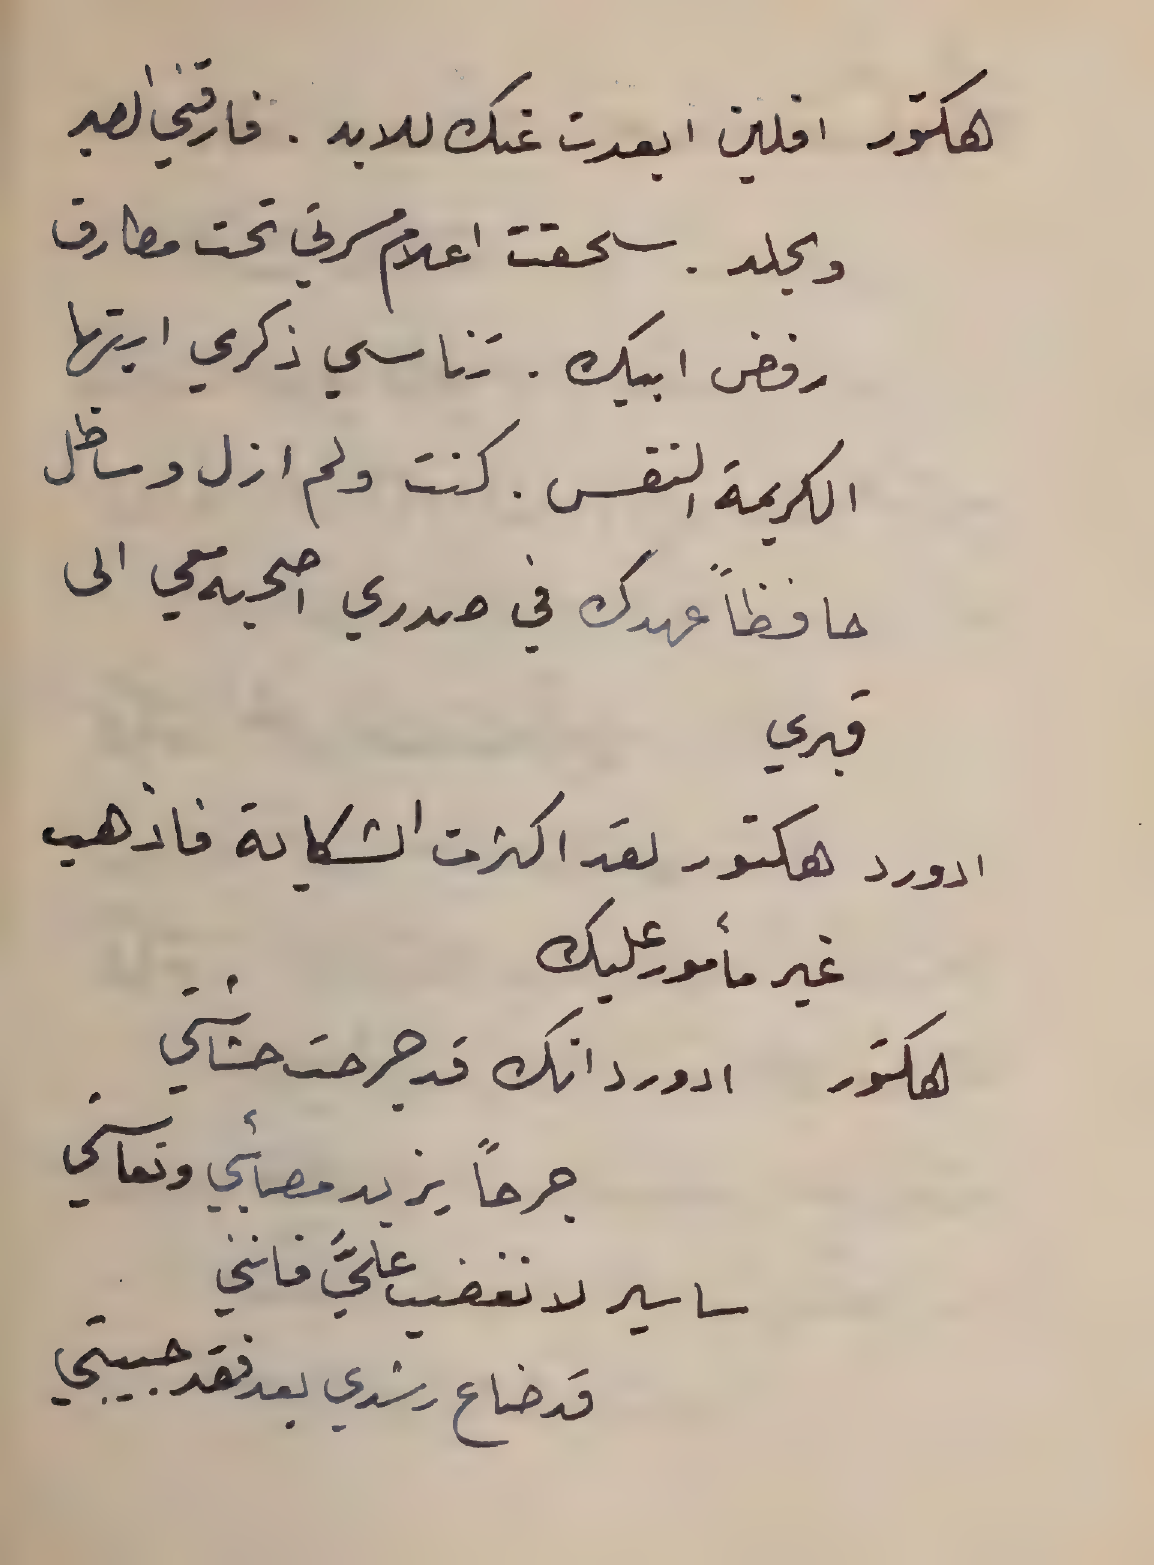 هكتور افلين ابعدت عنك للابد . فارقني الصبر
وتجلد . سحقت اعلام مسرتي تحت مطارق
رفض ابيك . تناسي ذكري ايتها
الكريمة النفس . كنت ولم ازل وساظل
حافظاً عهدك في صدري اصحبه معي الى
قبري
ادورد هكتور لقد اكثرت الشكاية فاذهب
غير مأمور عليك
هكتور ادورد انك قد جرحت حشاشتي
جرحاً يزيد مصائبي وتعاستي
ساسير لا تغضب عليَّ فانني
قد ضاع رشدي بعد فقد حبيبتي